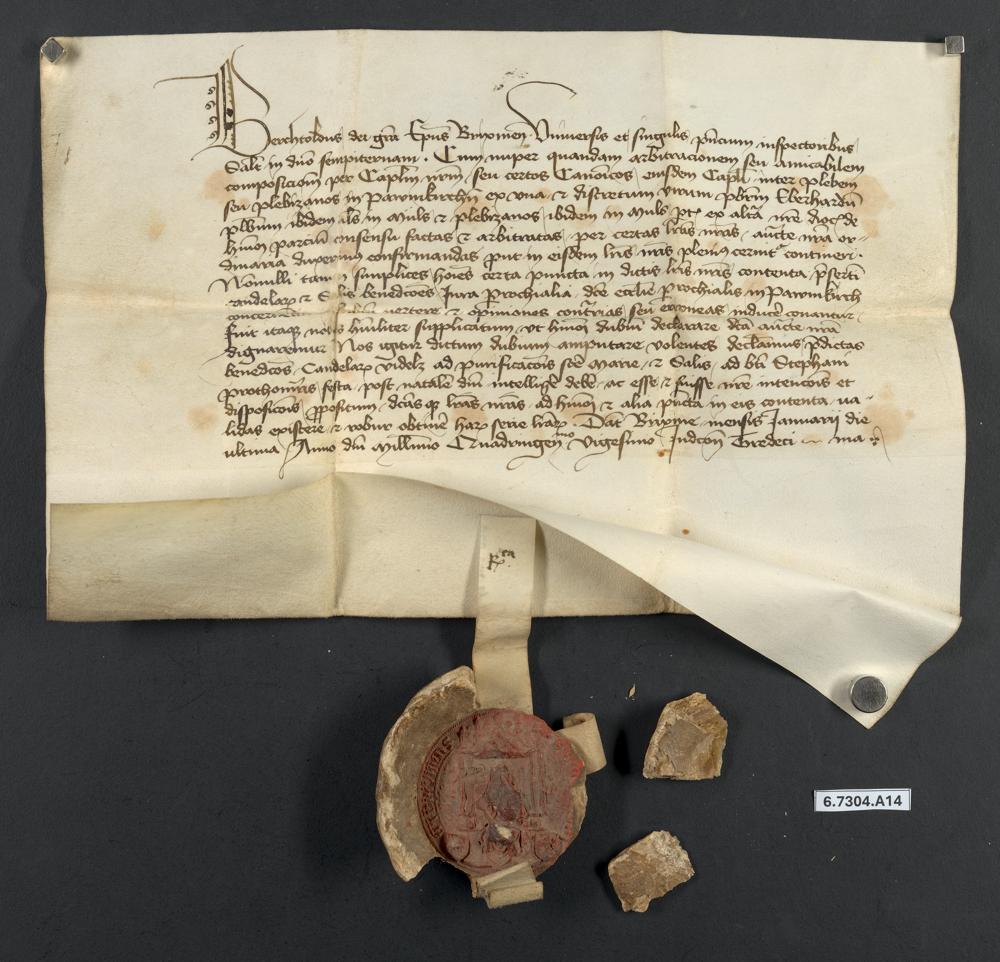 Berchtoldus dei gra Epus Brixinen Vniuersis et singulis pncium inspectoribus
Salt in dno sempiternam . Cum nuper quandam arbitracionem seu amicabilem
composicionem per Caplm nrm seu certos Canonicos eiusdem Capli inter plebem
seu plebizanos in Pawrnkirchn ex vna & discretum virum pbrm Eberhardu
plbnum ibidem als in Muls & plebizanos ibidem in Muls ex altra nre dioc de
hmoi parcium consensu factas & arbitratas per certas lras nras aucte nra or
dinaria duxerimus confirmandas put in eisdem lris nris plenius contineri .
Nonnulli tam simplices hoies certa puncta in dictis lris nris contenta psertim
candelarum & Salis benedcoes Iura prochialia dce ecclie prochialis in Pawrnkirch
uertere & opiniones contrarias seu erroneas inducere conantur
fuit itaque nobis humiliter supplicatum vt hmoi dubiu declarare dca aucte nra
dignaremur Nos igitur dictum dubium amputare volentes declaramus pdictas
benedcoes Candelarum videlz ad purificacois sce Marie & Salis ad bti Stephani
prothomris festa post natalem dni intelligi debere ac esse & fuisse nre intencois et
disposicois ppositum dcas que lras nras ad hmoi & alia puncta in eis contenta va
lidas existere & robur obtinere harum serie lrarum Dat Brixine mensis Januarii die
vltima Anno dni Millimo Quadringenmo Vigesimo Indcon Tredeci ma
Rta
6.7304.A14